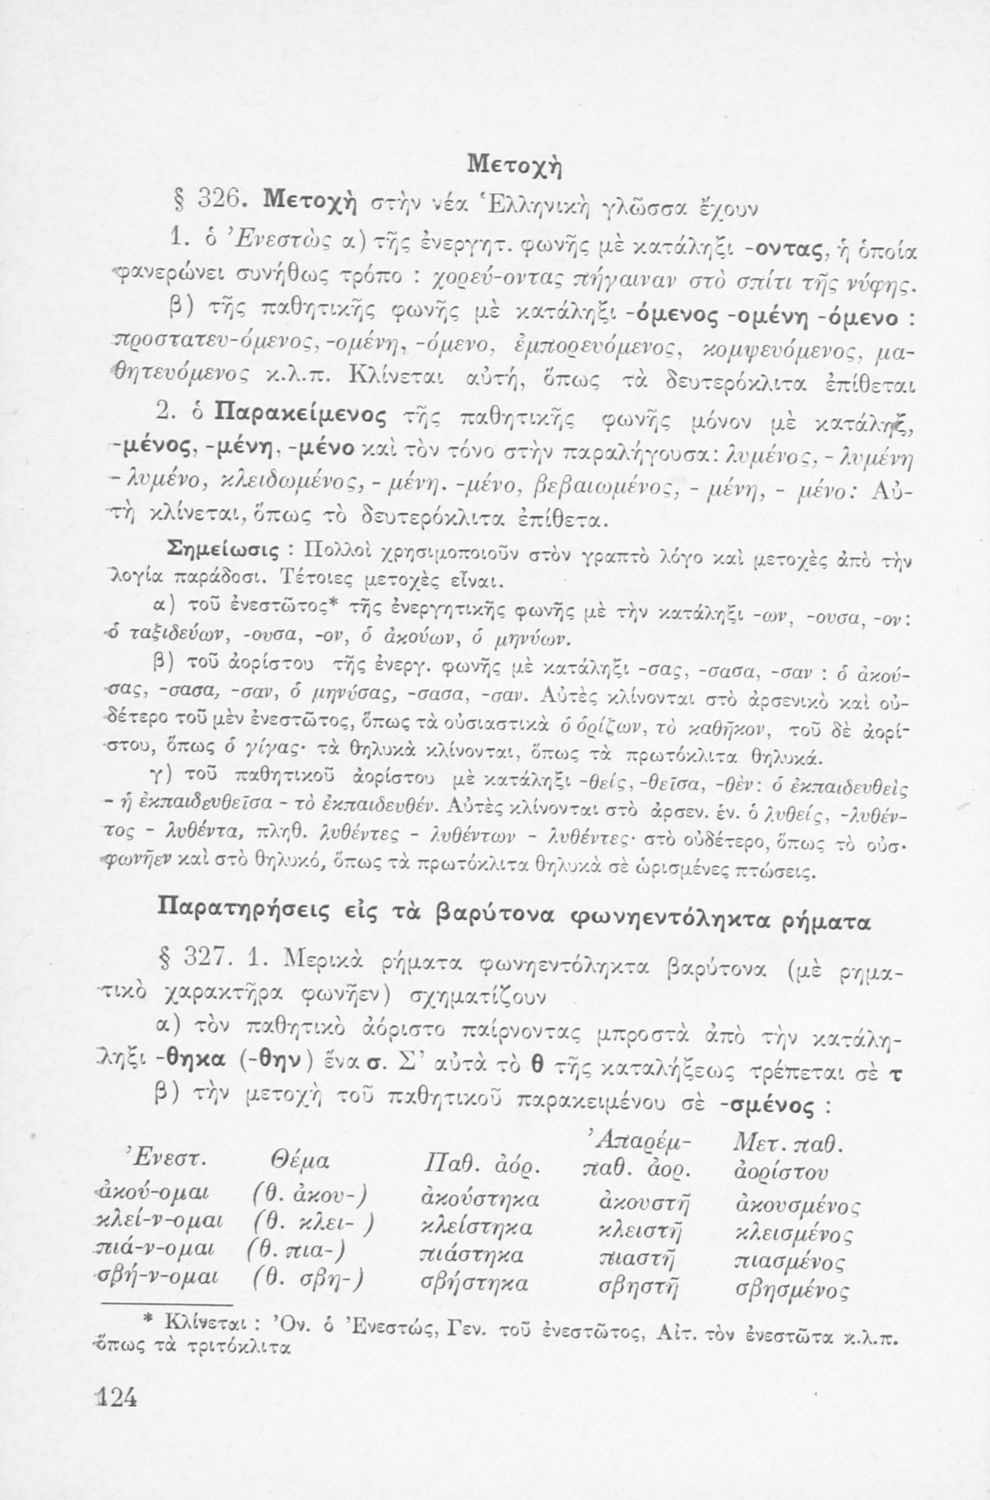 Μετοχὴ
§ 326. Μετοχὴ στὴν νέα Ἑλληνικὴ γλῶσσα ἔχουν
1. ὁ Ἐνεστὼς α) τῆς ἐνεργητ. φωνῆς μὲ κατάληξι -οντας, ἡ ὁποία
φανερώνει συνήθως τρόπο : χορεύ-οντας πήγαιναν στὸ σπίτι τῆς νύφης.
β) τῆς παθητικῆς φωνῆς μὲ κατάληξι -όμενος -ομένη -όμενο :
προστατευ-όμενος, -ομένη, -όμενο, ἐμπορευόμενος, κομψευόμενος, μα-
θητευόμενος κ.λ.π. Κλίνεται αὐτή, ὅπως τὰ δευτερόκλιτα ἐπίθεται
2. ὁ Παρακείμενος τῆς παθητικῆς φωνῆς μόνον μὲ κατάληξ,
-μένος, -μένη, -μένο καὶ τὸν τόνο στὴν παραλήγουσα: λυμένος, - λυμένη
- λυμένο, κλειδωμένος, - μένη. -μένο, βεβαιωμένος, - μένη, - μένο: Αὐ-
τὴ κλίνεται, ὅπως τὸ δευτερόκλιτα ἐπίθετα.
Σημείωσις : Πολλοὶ χρησιμοποιοῦν στὸν γραπτὸ λόγο καὶ μετοχὲς ἀπὸ τὴν
λογία παράδοσι. Τέτοιες μετοχὲς εἶναι.
α) τοῦ ἐνεστῶτος* τῆς ἐνεργητικῆς φωνῆς μὲ τὴν κατάληξι -ων, -ουσα, -ον:
ὁ ταξιδεύων, -ουσα, -ον, ὁ ἀκούων, ὁ μηνύων.
β) τοῦ ἀορίστου τῆς ἐνεργ. φωνῆς μὲ κατάληξι -σας, -σασα, -σαν : ὁ ἀκού-
σας, -σασα, -σαν, ὁ μηνύσας, -σασα, -σαν. Αὐτὲς κλίνονται στὸ ἀρσενικὸ καὶ οὐ-
δέτερο τοῦ μὲν ἐνεστῶτος, ὅπως τὰ οὐσιαστικὰ ὁ ὁρίζων, τὸ καθῆκον, τοῦ δὲ ἀορί-
στου, ὅπως ὁ γίγας· τὰ θηλυκὰ κλίνονται, ὅπως τὰ πρωτόκλιτα θηλυκά.
γ) τοῦ παθητικοῦ ἀορίστου μὲ κατάληξι -θείς, -θεῖσα, -θὲν: ὁ ἐκπαιδευθεὶς
- ἡ ἐκπαιδευθεῖσα - τὸ ἐκπαιδευθέν. Αὐτὲς κλίνονται στὸ ἀρσεν. ἑν. ὁ λυθείς, -λυθέν-
τος - λυθέντα, πληθ. λυθέντες - λυθέντων - λυθέντες· στὸ οὐδέτερο, ὅπως τὸ οὐσ.
φωνῆεν καὶ στὸ θηλυκό, ὅπως τὰ πρωτόκλιτα θηλυκὰ σὲ ὡρισμένες πτώσεις.
Παρατηρήσεις εἰς τὰ βαρύτονα φωνηεντόληκτα ρήματα
§ 327. 1. Μερικὰ ρήματα φωνηεντόληκτα βαρύτονα (μὲ ρημα-
τικὸ χαρακτῆρα φωνῆεν) σχηματίζουν
α) τὸν παθητικὸ ἀόριστο παίρνοντας μπροστὰ ἀπὸ τὴν κατάλη-
ληξι -θηκα (-θην) ἕνα σ. Σ' αὐτὰ τὸ θ τῆς καταλήξεως τρέπεται σὲ τ
β) τὴν μετοχὴ τοῦ παθητικοῦ παρακειμένου σὲ -σμένος :
Ἐνεστ. Θέμα Παθ. ἀόρ. Ἀπαρέμ- παθ. ἀορ. Μετ. παθ. ἀορίστου
ἀκού-ομαι (θ. ἀκου-) ἀκούστηκα ἀκουστῆ ἀκουσμένος
κλεί-ν-ομαι (θ. κλει- ) κλείστηκα κλειστῆ κλεισμένος
πιά-ν-ομαι (θ. πια-) πιάστηκα πιαστῆ πιασμένος
σβή-ν-ομαι (θ. σβη-) σβήστηκα σβηστῆ σβησμένος
* Κλίνεται : Ὀν. ὁ Ἐνεστώς, Γεν. τοῦ ἐνεστῶτος, Αἰτ. τὸν ἐνεστῶτα κ.λ.π.
ὅπως τὰ τριτόκλιτα
124